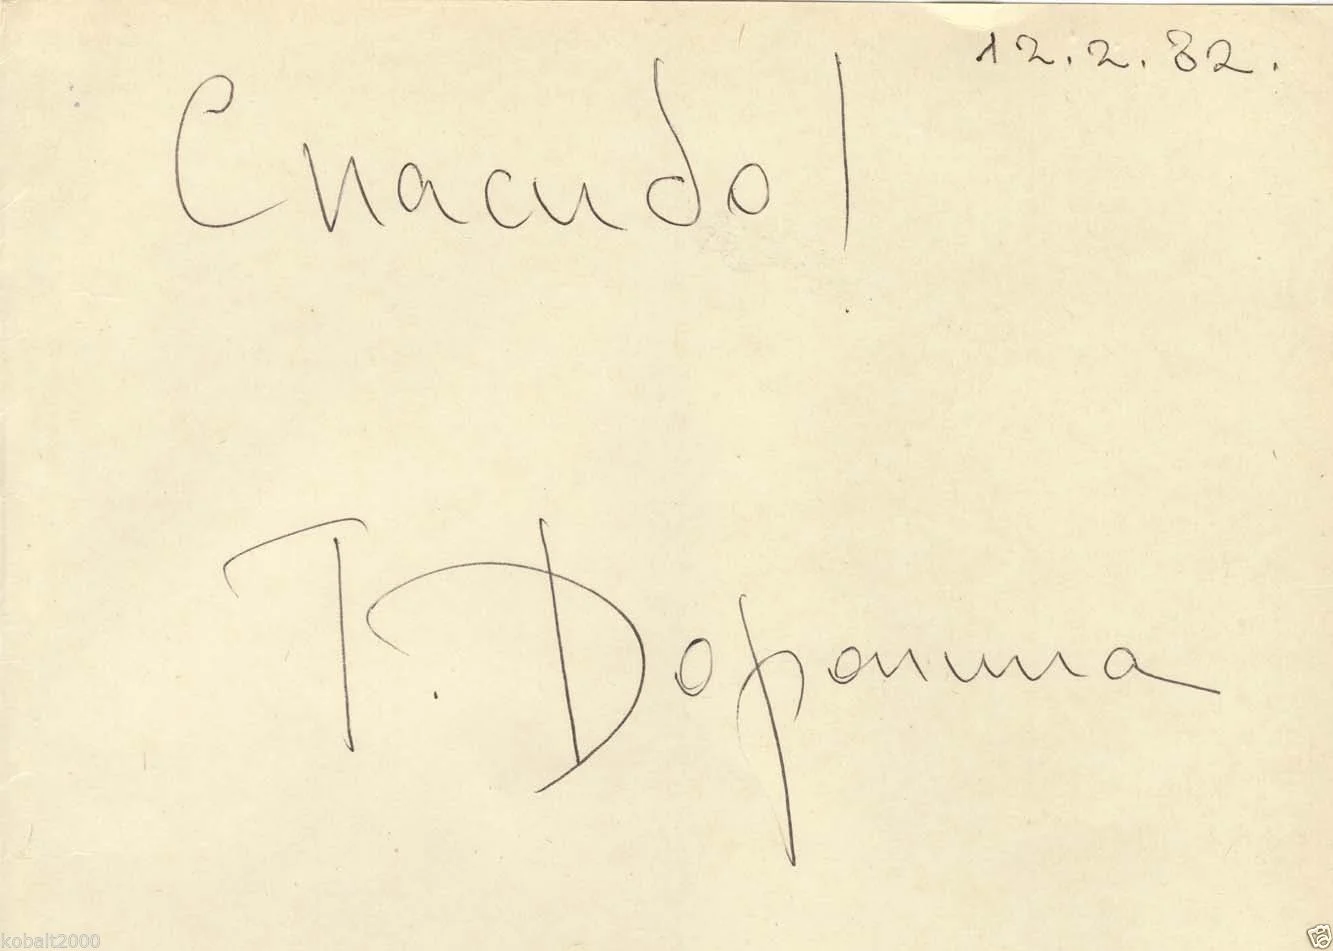 12.2.82.
Спасибо!
Т. Доронина
kobalt2000